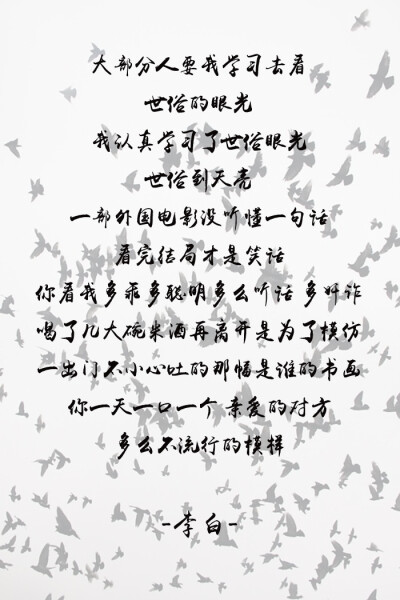 大部分人要我学习去看
世俗的眼光
我认真学习了世俗眼光
世俗到天亮
一部外国电影没听懂一句话
看完结局才是笑话
你看我多乖多聪明多么听话 多奸诈
喝了几大碗米酒再离开是为了模仿
一出门不小心吐的那幅是谁的书画
你一天一口一个 亲爱的对方
多么不流行的模样
-李白-